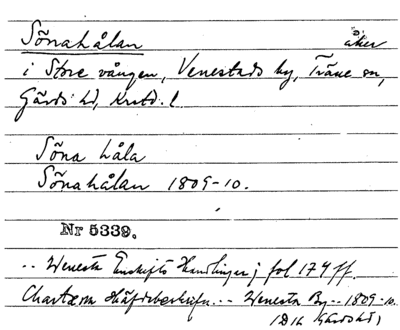 Sönahålan åker
i Store vången, Venestads by, Träne sn,
Gärds hd, Krstd. l.
Söna håla
Sönahålan 1809-10.
Nr 5339.
-- Wenesta Enskifts Handlingar j fol 174 ff.
Chartæm Häfdebeskrifn. -- Wenesta By -- 1809-10.